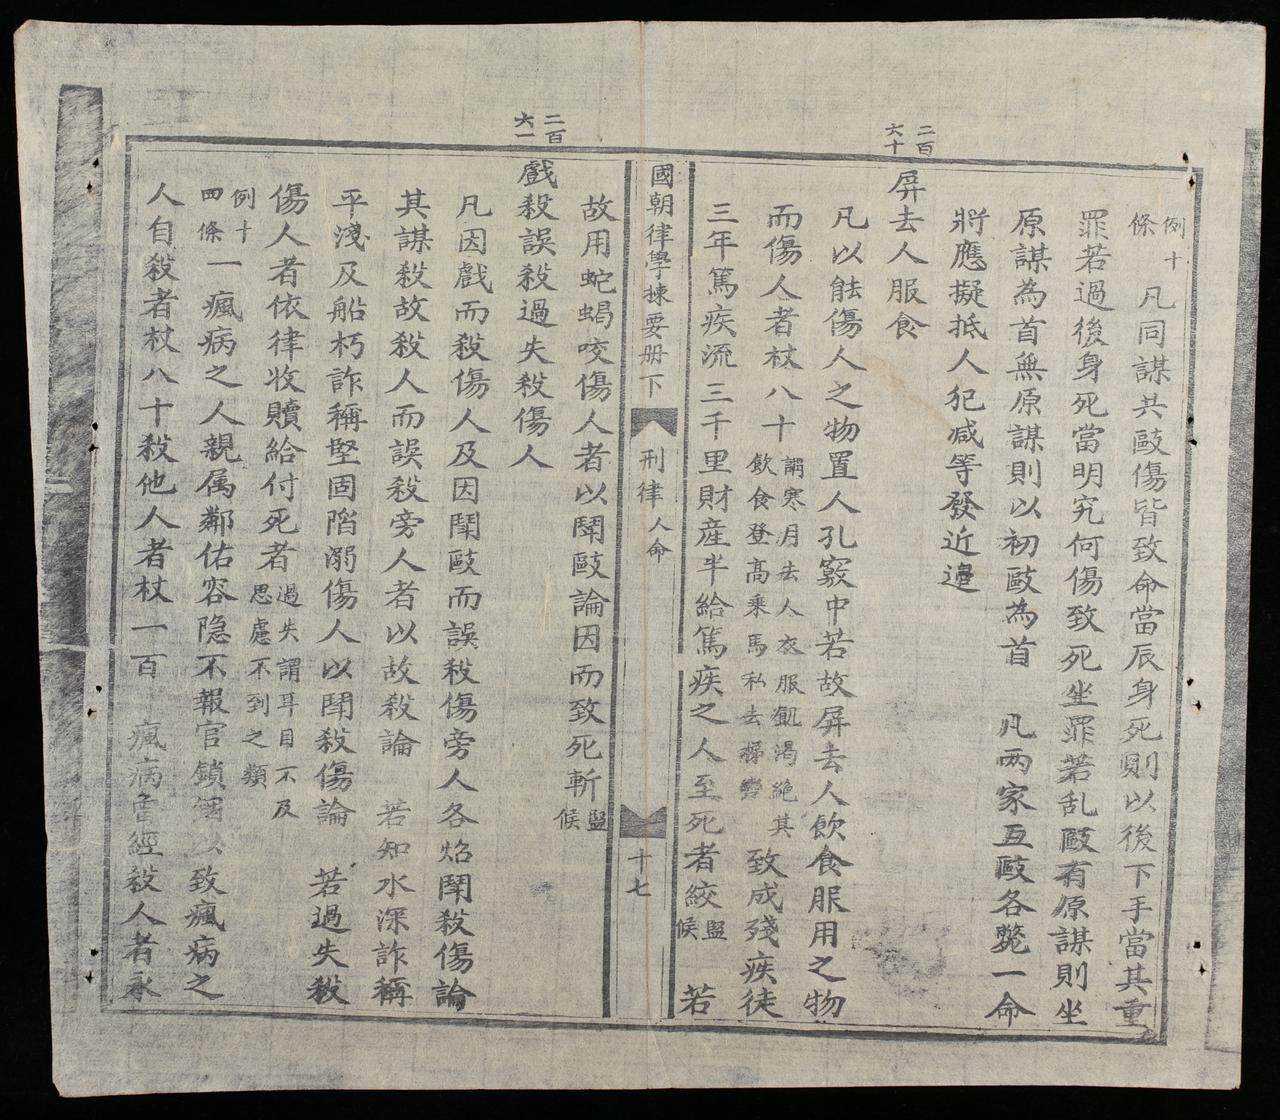 例十
條
凡同謀共毆傷皆致命當辰身死則以後下手當其重
罪若過後身死當明究何傷致死坐罪若乱毆有原謀則坐
原謀為首無原謀則以初毆為首　凡两家互毆各斃一命
將應擬抵人犯减等發近邉
二百
六十
屏去人服食
凡以能傷人之物置人孔竅中若故屏去人飲食服用之物
而傷人者杖八十
謂寒月去人衣服飢渴絶其
飲食登高乘馬私去梯轡
致成殘疾徒
三年篤疾流三千里財産半給篤疾之人至死者絞
監
候
若
國朝律學揀要册下
刑律
人命
十七
故用蛇蝎咬傷人者以鬦毆論因而致死斬
監
候
二百
六一
戲殺誤殺過失殺傷人
凡因戲而殺傷人及因鬦毆而誤殺傷旁人各炤鬦殺傷論
其謀殺故殺人而誤殺旁人者以故殺論　若知水深詐稱
平淺及船朽詐稱堅固陷溺傷人以鬦殺傷論　若過失殺
傷人者依律收贖給付死者
過失謂耳目不及
思慮不到之類
例十
四條
一瘋病之人親属鄰佑容隐不報官鎖錮以致瘋病之
人自殺者杖八十殺他人者杖一百　瘋病曾經殺人者永